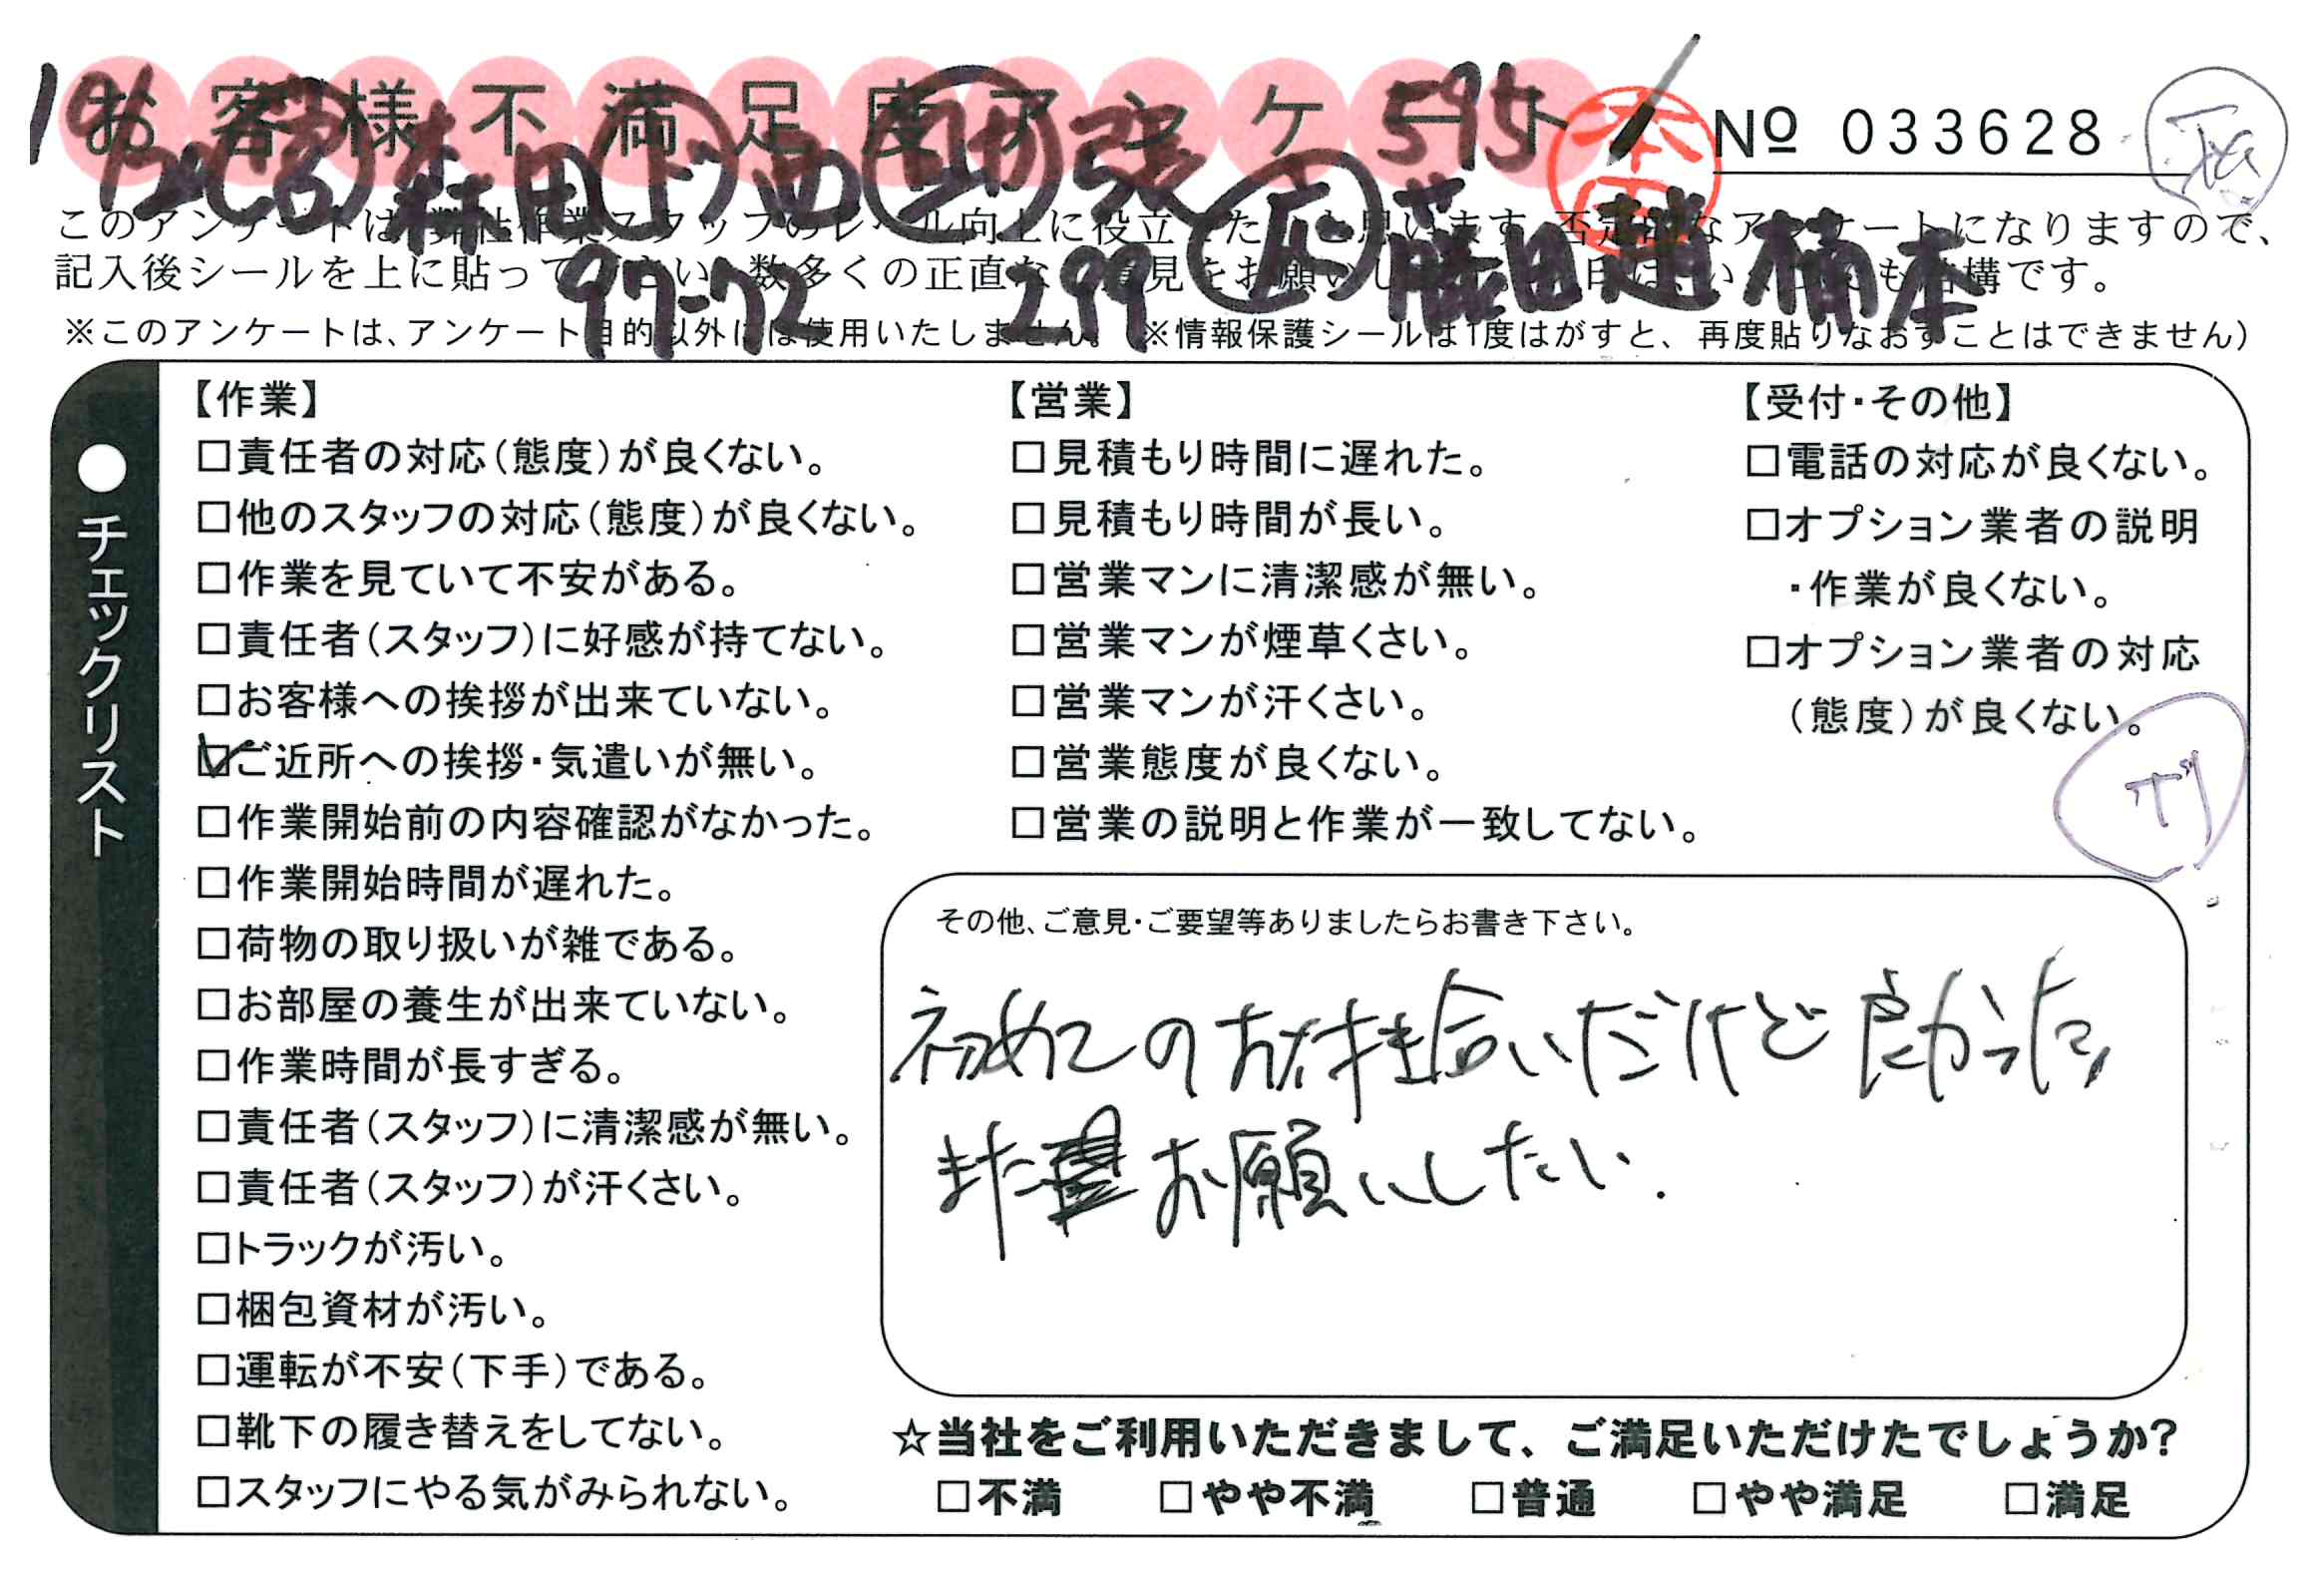 お客様不満足度アンケート
№ 033628
595
森田 西 張
97-72 299 藤田 趙 楠本
このアンケートは
になりますので、
記入後シールを上に貼って 数多くの正直な
構です。
※このアンケートは、アンケート目的以外には使用いたしません。 ※情報保護シールは1度はがすと、再度貼りなおすことはできません)
●チェックリスト
【作業】
□責任者の対応(態度)が良くない。
□他のスタッフの対応(態度)が良くない。
□作業を見ていて不安がある。
□責任者(スタッフ)に好感が持てない。
□お客様への挨拶が出来ていない。
☑ご近所への挨拶・気遣いが無い。
□作業開始前の内容確認がなかった。
□作業開始時間が遅れた。
□荷物の取り扱いが雑である。
□お部屋の養生が出来ていない。
□作業時間が長すぎる。
□責任者(スタッフ)に清潔感が無い。
□責任者(スタッフ)が汗くさい。
□トラックが汚い。
□梱包資材が汚い。
□運転が不安(下手)である。
□靴下の履き替えをしてない。
□スタッフにやる気がみられない。
【営業】
□見積もり時間に遅れた。
□見積もり時間が長い。
□営業マンに清潔感が無い。
□営業マンが煙草くさい。
□営業マンが汗くさい。
□営業態度が良くない。
□営業の説明と作業が一致してない。
【受付・その他】
□電話の対応が良くない。
□オプション業者の説明
・作業が良くない。
□オプション業者の対応
(態度)が良くない。
その他、ご意見・ご要望等ありましたらお書き下さい。
初めてのお付き合いだけど良かった
また お願いしたい.
☆当社をご利用いただきまして、ご満足いただけたでしょうか?
□不満 □やや不満 □普通 □やや満足 □満足